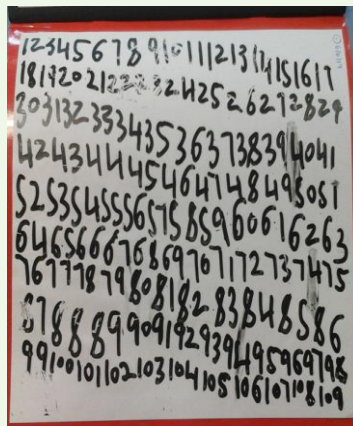 1234567891011121314151617
181920212223242526272829
303132333435363738394041
42434445464748495051
525354555657585960616263
646566676869707172737475
7677787980818283848586
878889909192939495969798
99100101102103104105106107108109